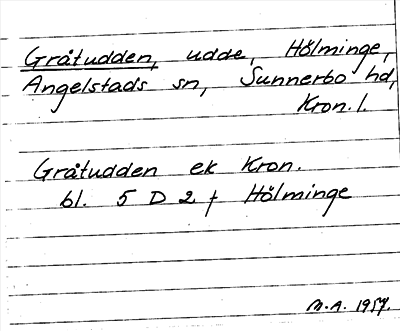 Gråtudden, udde, Hölminge,
Angelstads sn, Sunnerbo hd,
Kron. l.
Gråtudden ek Kron.
bl. 5 D 2 f Hölminge
M.A. 1957.